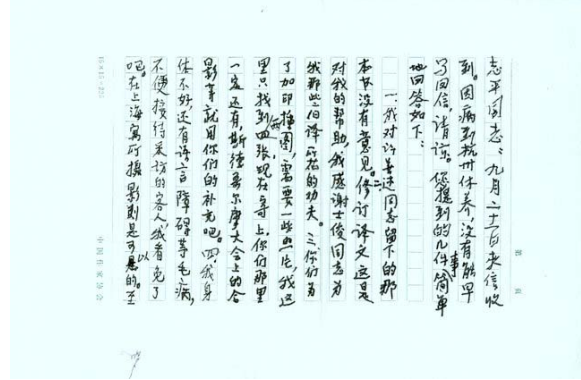 志平同志：九月二十一日来信收
到。因病到杭州休养，没有能早
写回信，请谅。您提到的几件事简单
地回答如下：
一、我对许善述同志留下的那
本书没有意见。二、修订译文这是
对我的帮助，我感谢士俊同志为
我那些旧译所花的功夫。三、你们为
了加印插图，需要一些照片，我这
里只找到四张，现在寄上。你们那里
一定还有，斯德哥尔摩大会上的合
影等就用你们的补充吧。四、我身
体不好，还有语言障碍等毛病，
不便接待采访的客人，我看免了
吧。在上海寓所摄影则是可以的。至
15×15=225
中国作家协会
第 页